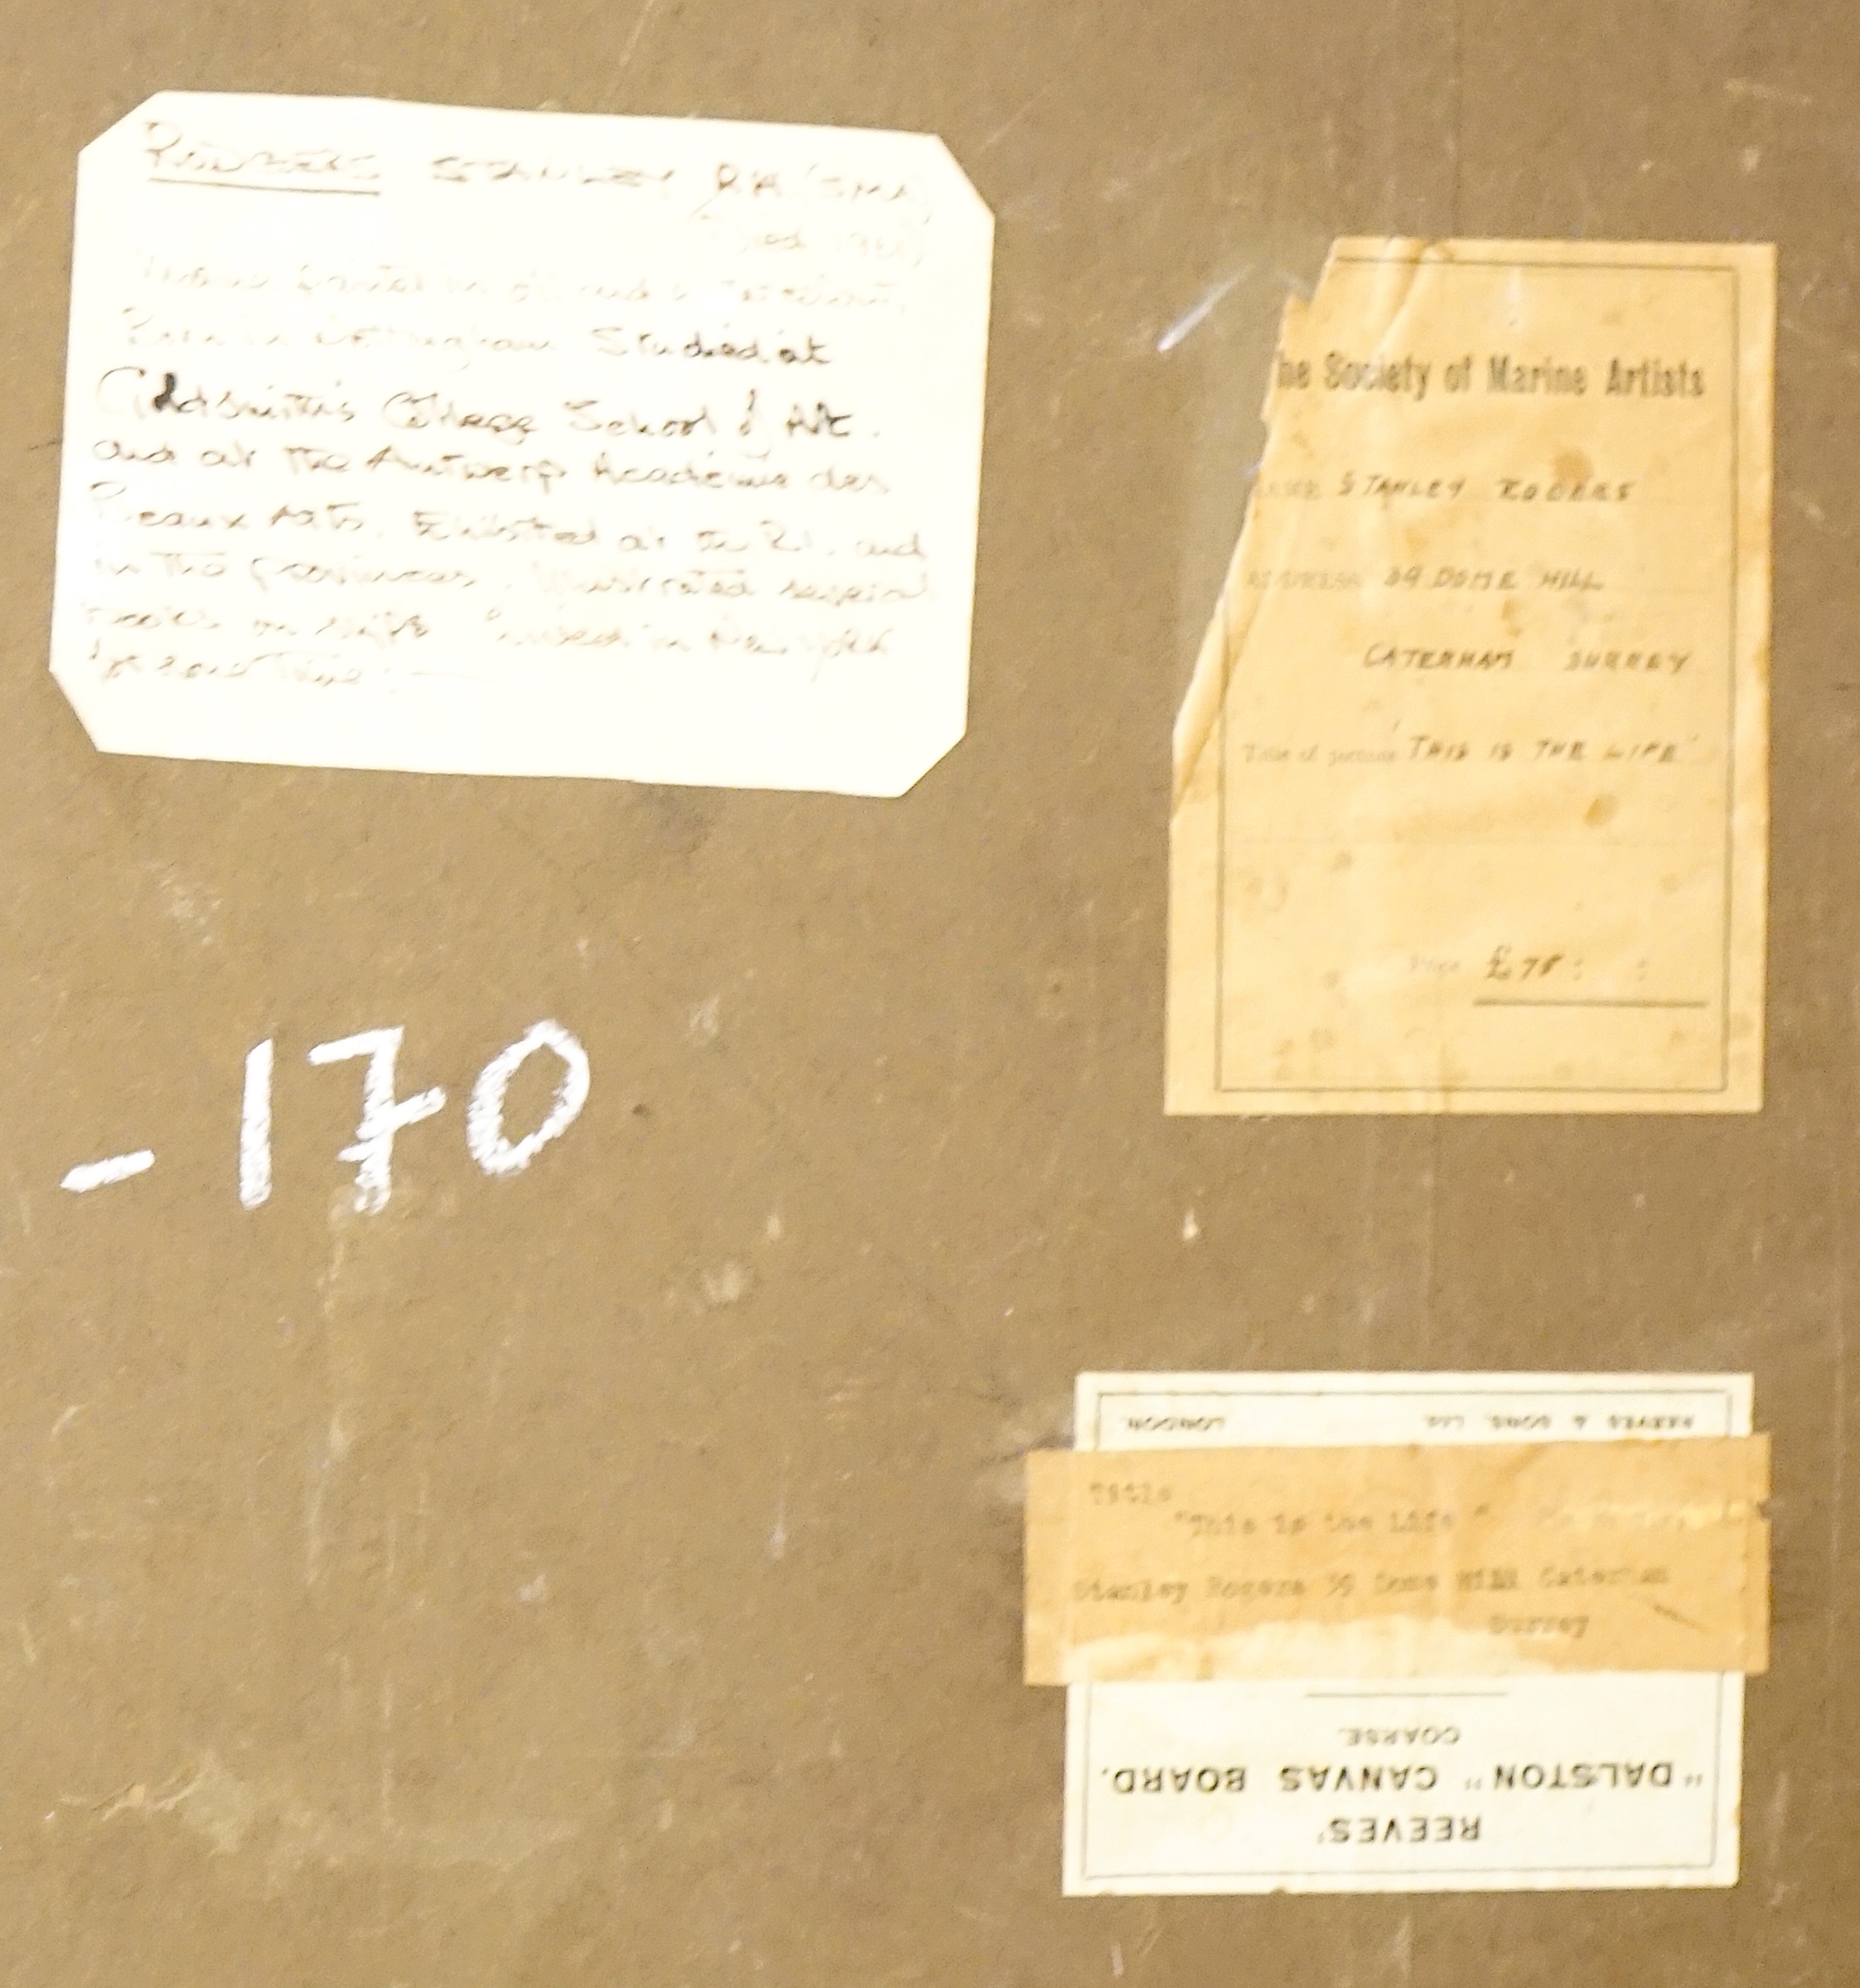 STANLEY
Studied at
Goldsmith's College School of Art.
and at the Antwerp Academie des
Beaux Arts. Exhibited at the R.I. and
in the provinces. Illustrated several
in New York
for some time: —
- 170
he Society of Marine Artists
STANLEY ROGERS
ADDRESS 39 DOME HILL
CATERHAM SURREY
Title of picture "THIS IS THE LIFE"
Price £78 : :
REEVES & SONS, Ltd. LONDON.
Title
"This is the Life"
Stanley Rogers 39 Dome Hill Caterham
Surrey
REEVES'
"DALSTON" CANVAS BOARD.
COARSE.